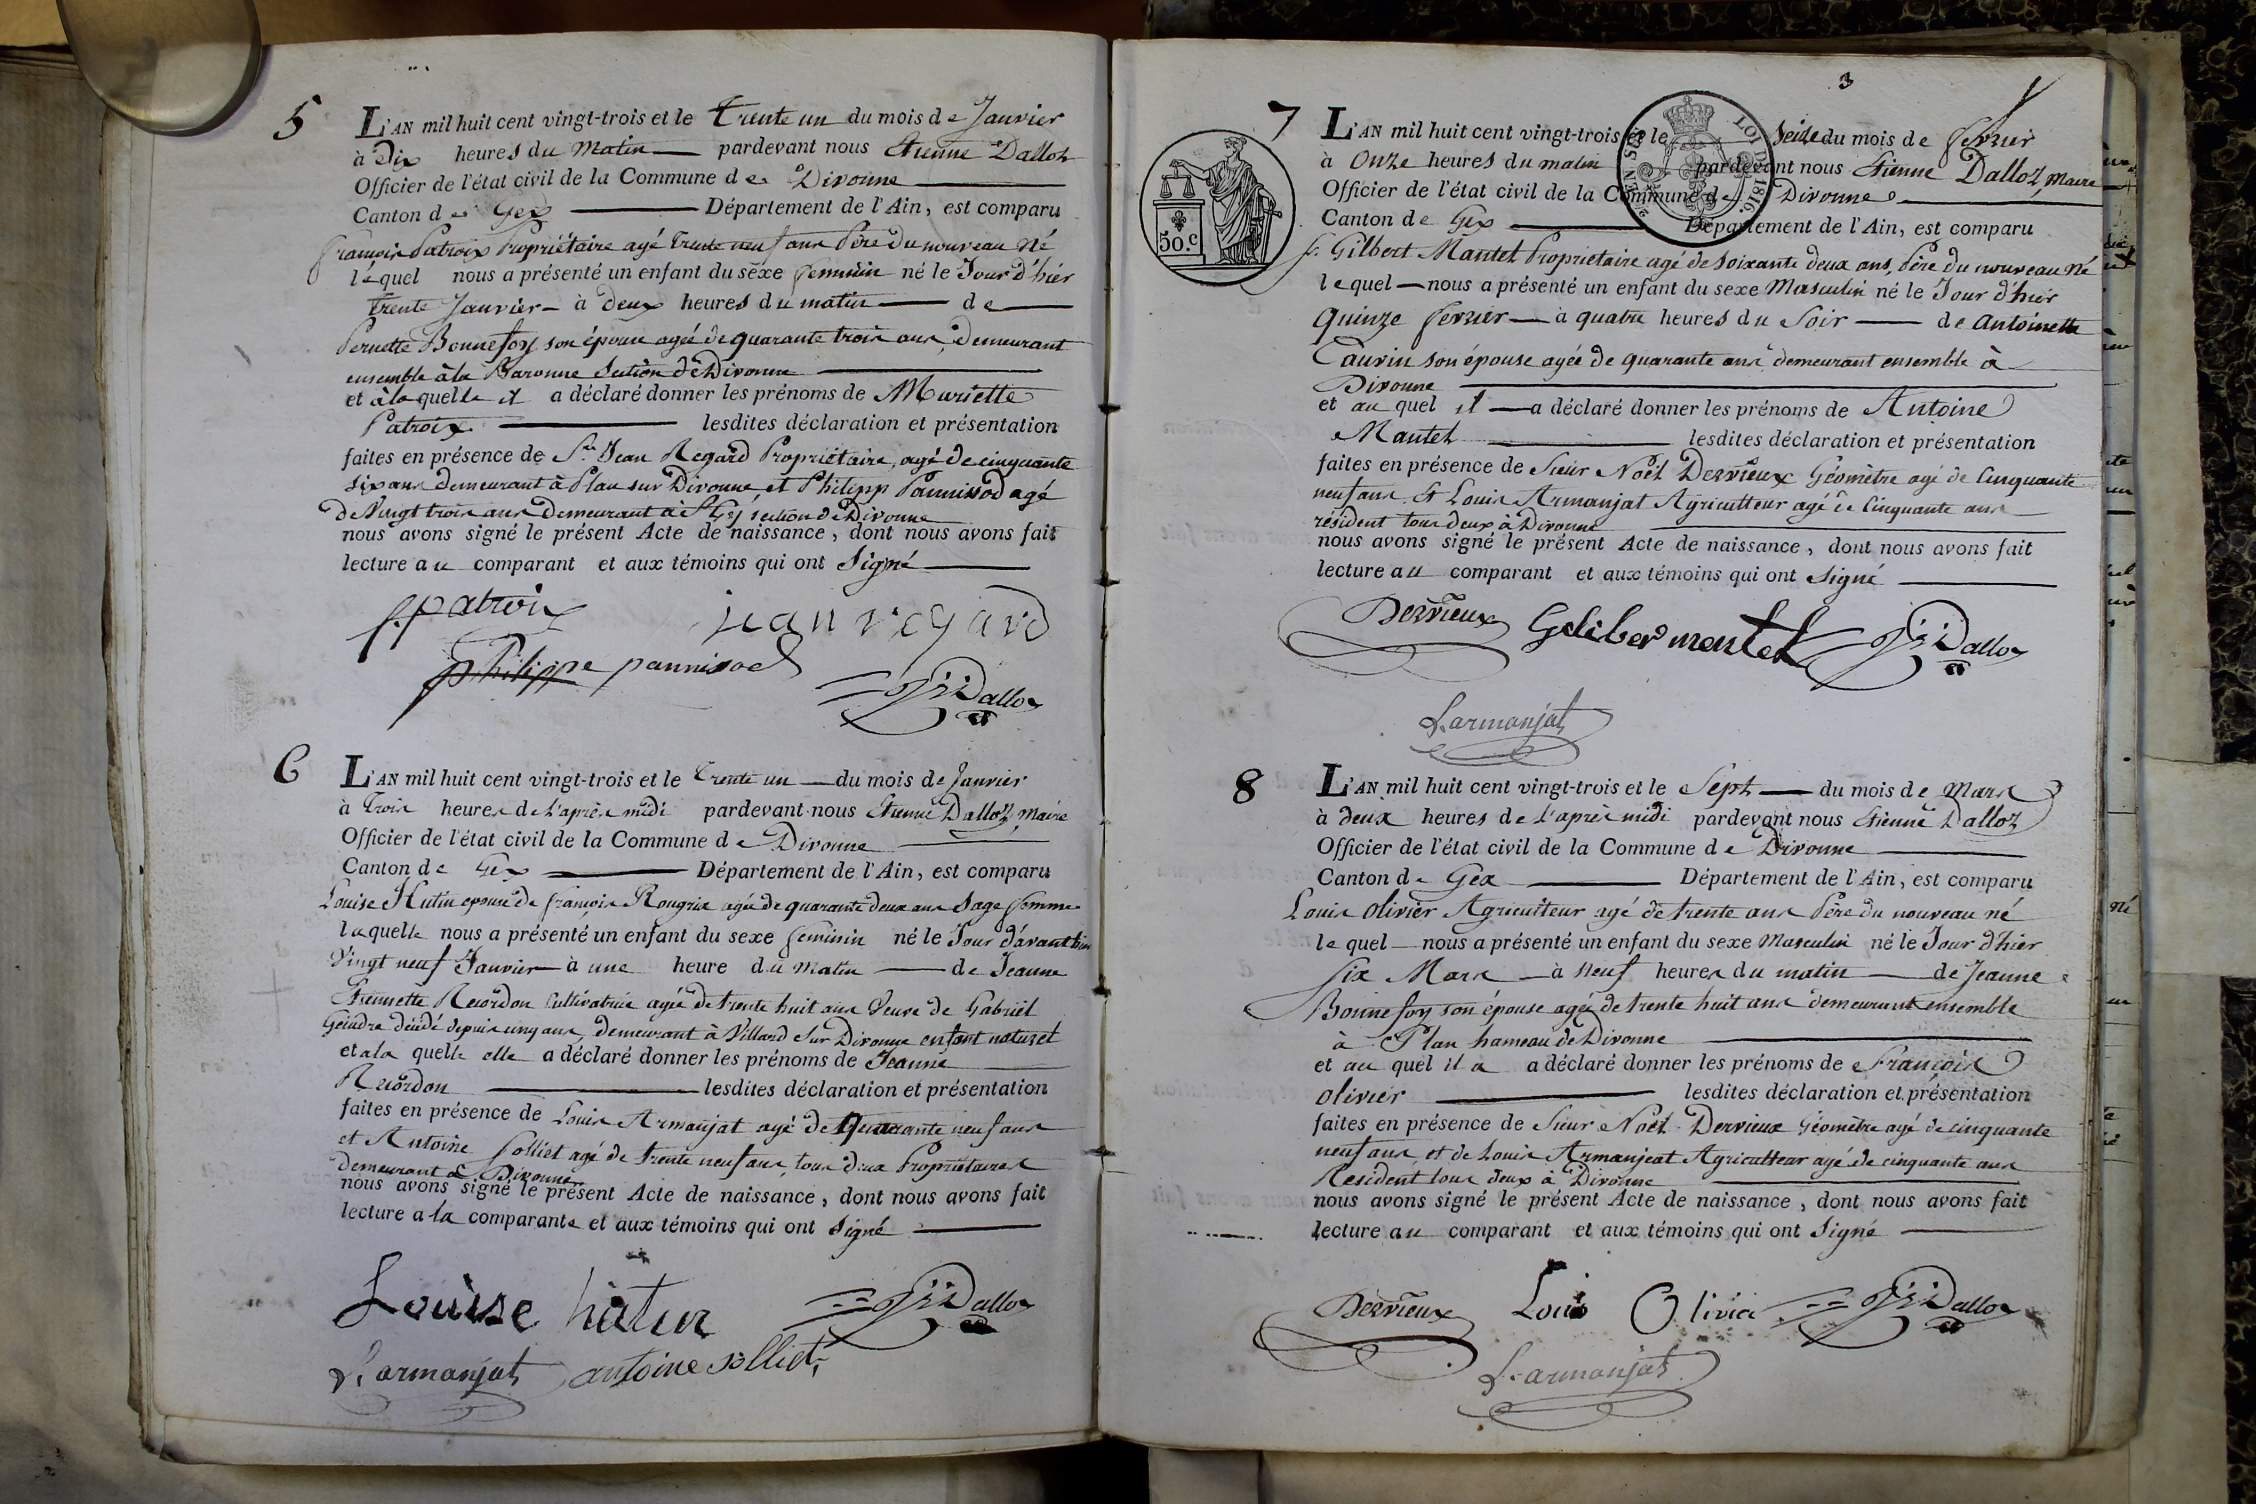 5
L'AN mil huit cent vingt-trois et le trente un du mois de Janvier
à Dix heures du matin pardevant nous Etienne Dalloz
Officier de l'état civil de la Commune de Divonne
Canton de Gex Département de l'Ain, est comparu
françois Patroix Propriétaire agé trente neuf ans Père du nouveau Né
lequel nous a présenté un enfant du sexe feminin né le Jour d'hier
trente Janvier à deux heures du matin de
Pernette Bonnefoy son épouse agée de quarante trois ans, demeurant
ensemble à la Baronne Section de Divonne
et à laquelle il a déclaré donner les prénoms de Mariette
Patroix lesdites déclaration et présentation
faites en présence de Sr. Jean Regard Propriétaire, agé de cinquante
six ans demeurant à Plan sur Divonne et Philipp Pannissod agé
de Vingt trois ans demeurant à St Gy section de Divonne
nous avons signé le présent Acte de naissance, dont nous avons fait
lecture au comparant et aux témoins qui ont Signé
f. patroix jean regard
philippe pannisod
Dalloz
6
L'AN mil huit cent vingt-trois et le trente un du mois de Janvier
à trois heures de l'après midi pardevant nous Etienne Dalloz, Maire
Officier de l'état civil de la Commune de Divonne
Canton de Gex Département de l'Ain, est comparu
Louise Hutin epouse de françois Rougrix agée de quarante deux ans Sage femme
laquelle nous a présenté un enfant du sexe feminin né le Jour d'avant hier
Vingt neuf Janvier à une heure du matin de Jeanne
Etiennette Recordon Cultivatrice agée de trente huit ans Veuve de Gabriel
Geindre décédé depuis cinq ans, demeurant à Villard sur Divonne enfant naturel
et a la quelle elle a déclaré donner les prénoms de Jeanne
Recordon lesdites déclaration et présentation
faites en présence de Louis Armanjat agé de Quarante neuf ans
et Antoine Solliet agé de trente neuf ans, tous deux Propriétaires
demeurant à Divonne
nous avons signé le présent Acte de naissance, dont nous avons fait
lecture a la comparante et aux témoins qui ont signé
Louise hutin Dalloz
L. armanjat antoine solliet
3
7
50.c
LOI DE 1816.
L'AN mil huit cent vingt-trois et le Seize du mois de fevrier
à Onze heures du matin pardevant nous Etienne Dalloz, Maire
Officier de l'état civil de la Commune de Divonne
Canton de Gex Département de l'Ain, est comparu
s. Gilbert Mantel Proprietaire agé de Soixante deux ans, Père du nouveau Né
lequel nous a présenté un enfant du sexe Masculin né le Jour d'hier
Quinze fevrier à quatre heures du Soir de Antoinette
Cauvin son épouse agée de quarante ans demeurant ensemble à
Divonne
et au quel il a déclaré donner les prénoms de Antoine
Mantel lesdites déclaration et présentation
faites en présence de Sieur Noël Dervieux Géomètre agé de Cinquante
neuf ans Et Louis Armanjat Agriculteur agé de Cinquante ans
résident tous deux à Divonne
nous avons signé le présent Acte de naissance, dont nous avons fait
lecture au comparant et aux témoins qui ont signé
Dervieux Geliber mentel Dalloz
L. armanjat
8
L'AN mil huit cent vingt-trois et le Sept du mois de Mars
à deux heures de l'après midi pardevant nous Etienne Dalloz
Officier de l'état civil de la Commune de Divonne
Canton de Gex Département de l'Ain, est comparu
Louis Olivier Agriculteur agé de trente ans Père du nouveau né
lequel nous a présenté un enfant du sexe Masculin né le Jour d'hier
Six Mars à Neuf heures du matin de Jeanne
Bonnefoy son épouse agée de trente huit ans demeurant ensemble
à Plan hameau de Divonne
et au quel il a a déclaré donner les prénoms de François
olivier lesdites déclaration et présentation
faites en présence de Sieur Noël Dervieux Géomètre agé de cinquante
neuf ans et de Louis Armanjeat Agriculteur agé de cinquante ans
Resident tous deux à Divonne
nous avons signé le présent Acte de naissance, dont nous avons fait
lecture au comparant et aux témoins qui ont Signé
Dervieux Louis Olivier Dalloz
L. armanjat